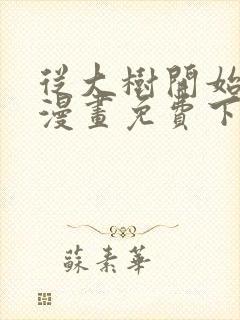 從大樹開始
漫畫免費下
蘇素華